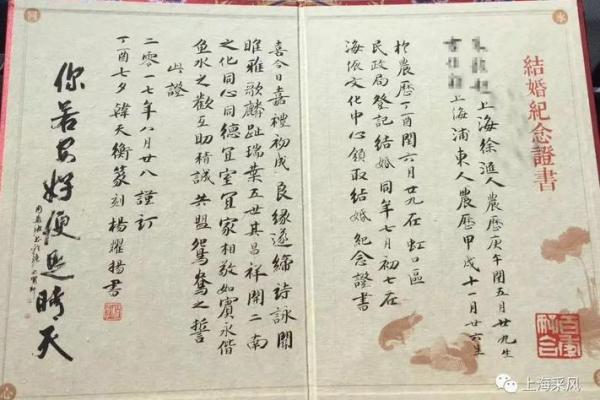 永
結婚紀念證書
上海徐滙人農歷庚午閏五月廿九生
上海浦東人農歷甲戌十一月廿六生
於農歷丁酉閏六月廿九在虹口區
民政局登記結婚同年七月初七在
海派文化中心領取結婚紀念證書
百年好合
喜今日嘉禮初成良緣遂締詩詠關
雎雅歌麟趾瑞葉五世其昌祥開二南
之化同心同德宜室宜家相敬如賓永偕
魚水之歡互助精誠共盟鴛鴦之誓
此證
二零一七年八月廿八謹訂
丁酉七夕韓天衡篆刻楊耀揚書
你若安好便是晴天
同
心
上海采风